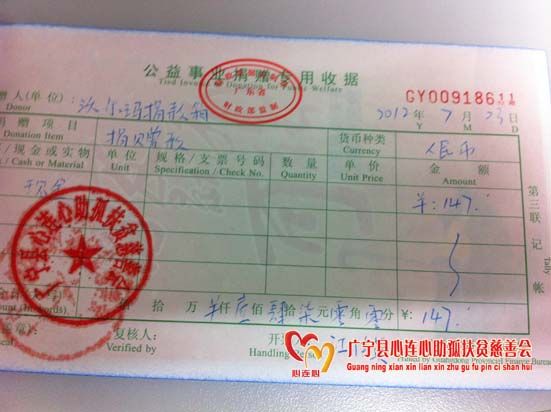 公益事业捐赠专用收据
Tied Invoice Donation for Public Welfare
GY00918611
赠人(单位): 沃尔玛捐款箱 2012年 7月 23日
Donor Y M D
捐赠项目 捐赠款 货币种类 人民币
Donation Item Currency
(现金或实物) 单位 规格/支票号码 数量 单价 金额
/ Cash or Material Unit Specification / Check No. Quantity Unit Price Amount
现金 ¥:147.
第三联 记帐
Tally
广宁县心连心助孤扶贫慈善会
拾 万 仟 佰 肆拾柒元零角零分 ¥: 147.
复核人: 开
Verified by Handling Person
Printed by Guangdong Provincial Finance Bureau
心连心
广宁县心连心助孤扶贫慈善会
Guang ning xian xin lian xin zhu gu fu pin ci shan hui